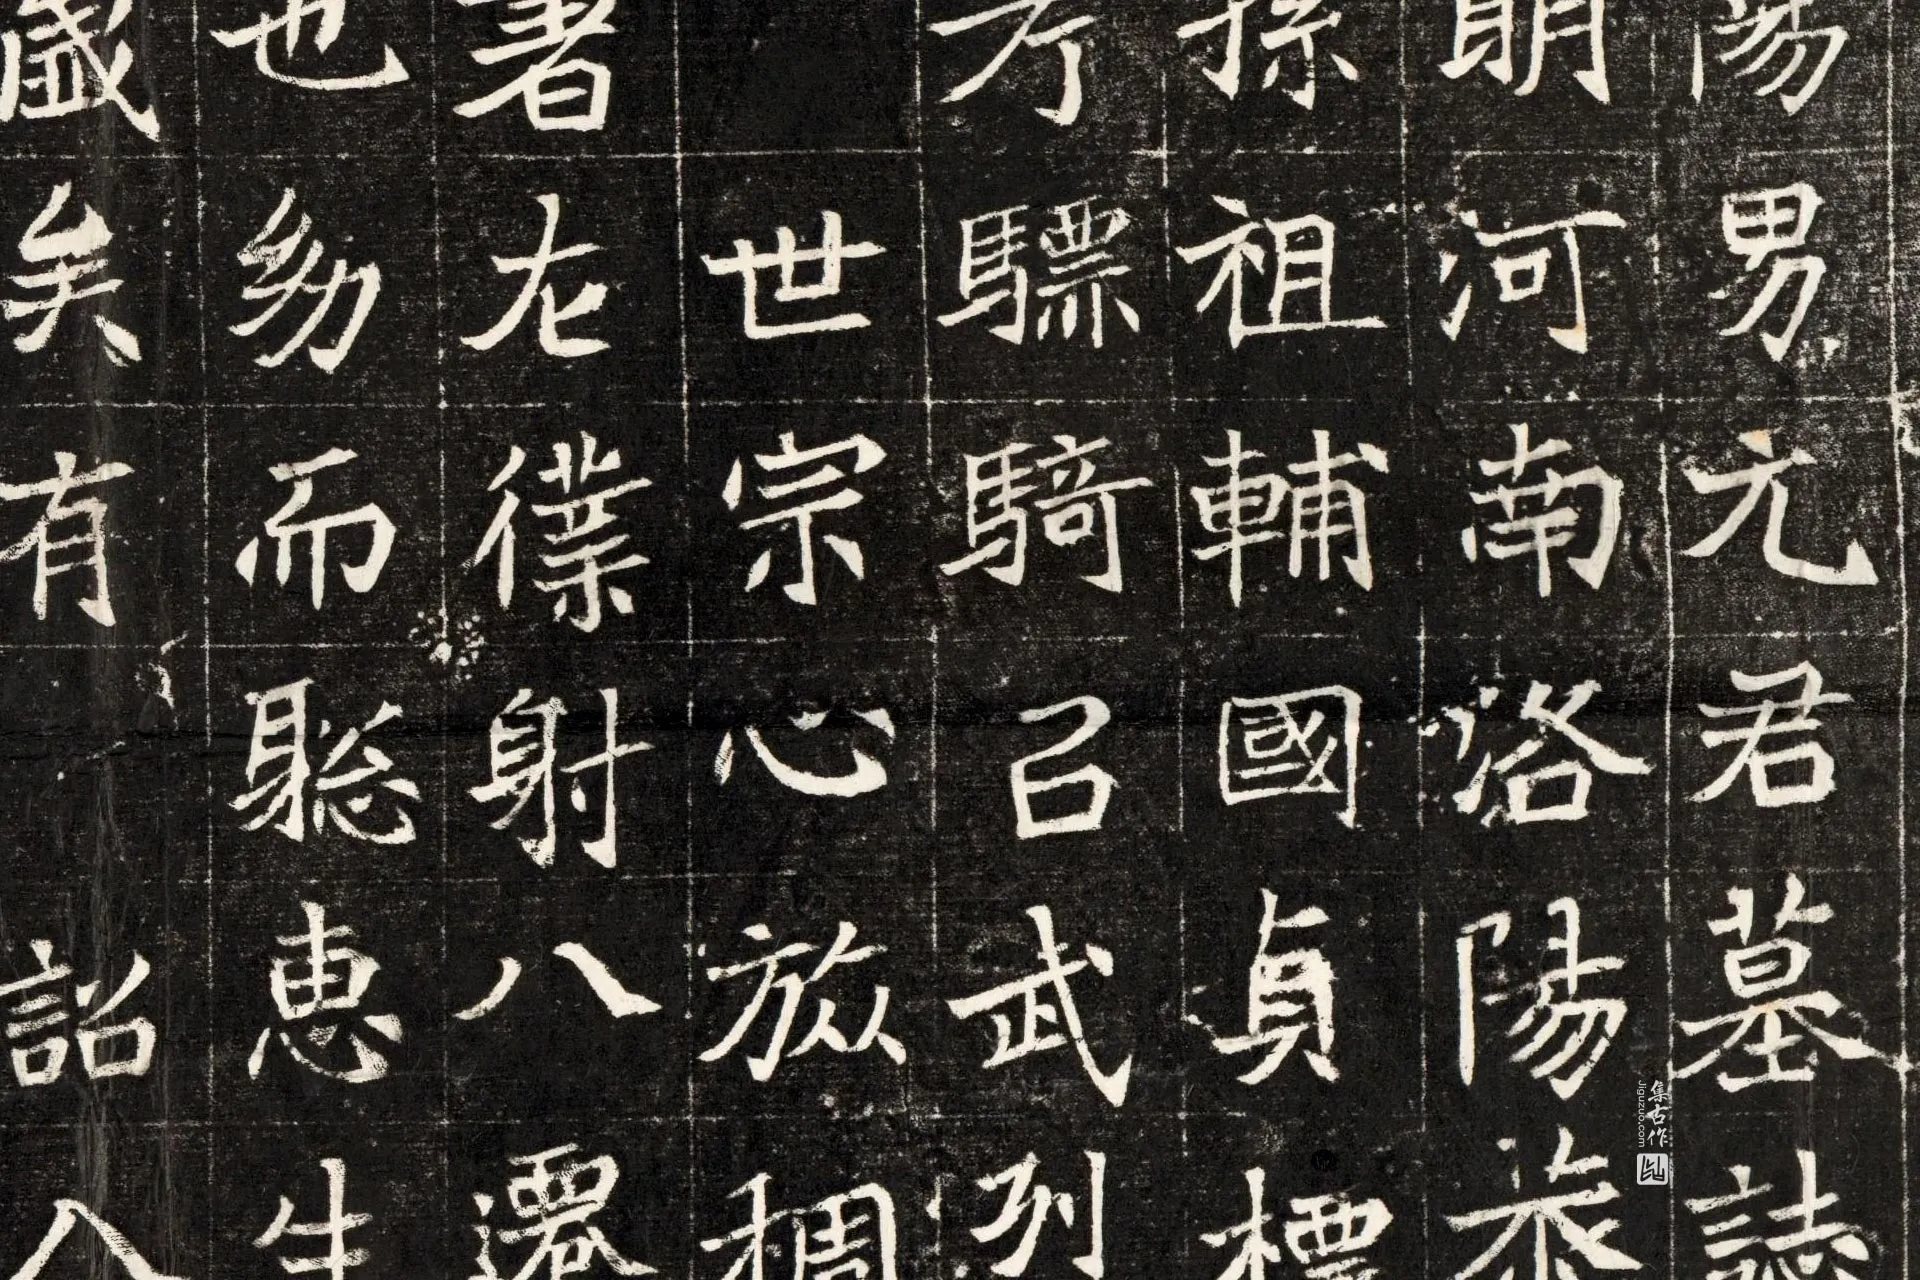 蕩男元君墓誌
明河南洛陽恭
孫祖輔國貞標
考驃騎召武列
世宗心放稠
著左僕射八遷
也幼而聡恵生
歲矣有詔八
集古作
Jiguzuo.com